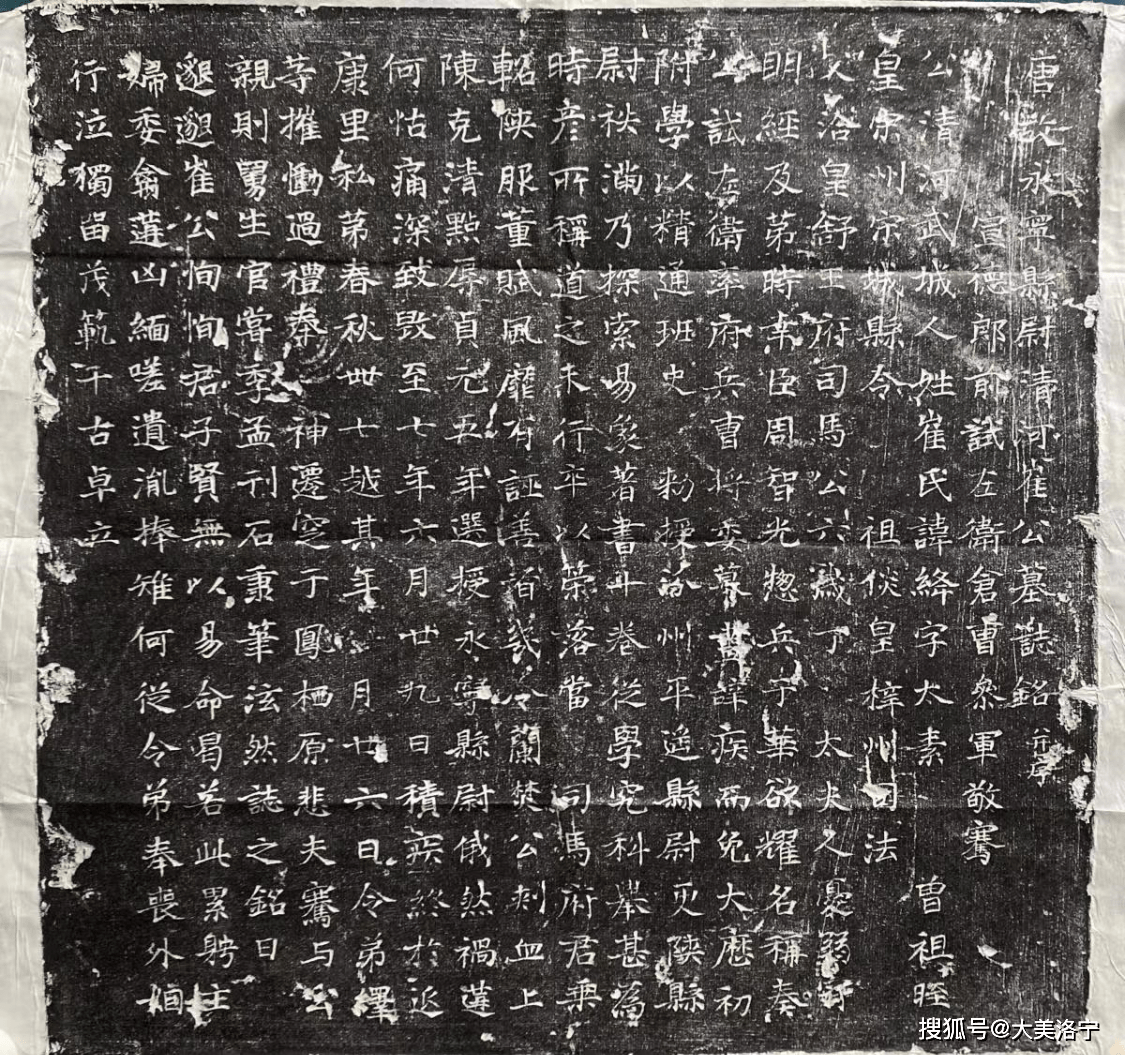 唐故永寧縣尉清河崔公墓誌銘并序
宣德郎前試左衛倉曹叅軍敬騫
公清河武城人姓崔氏諱絳字太素 曾祖晊
皇宗州宗城縣令 祖倓皇梓州司法
父洽皇舒王府司馬公六歲丁 太夫人憂
明經及第時宰臣周智光惣兵于華欲耀名稱奏
公試左衛率府兵曹將委幕辭疾而免大曆初
附學以精通班史 勑授汾州平遥縣尉更陝縣
尉袟滿乃探索易象著書廾卷從學究科舉甚爲
時彦所稱道之未行卒以榮落當 司馬府君乗
軺陝服董賦風靡有誣善者義令蘭焚公刺血上
陳克清黠辱貞元五年選授永寧縣尉俄然禍遘
何怙痛深致毁至七年六月廿九日積疾終於延
康里私第春秋卌七越其年 月廿六日令弟擇
等摧慟過禮奉 神遷窆于鳳栖原悲夫騫与公
親則舅生官甞季孟刊石秉筆泫然誌之銘曰
邈邈崔公恂恂君子賢無以易命曷若此累躬主
婦委禽遘凶緬嗟遺胤捧雉何從令弟奉喪外姻
行泣獨留茂範千古卓立
搜狐号@大美洛宁